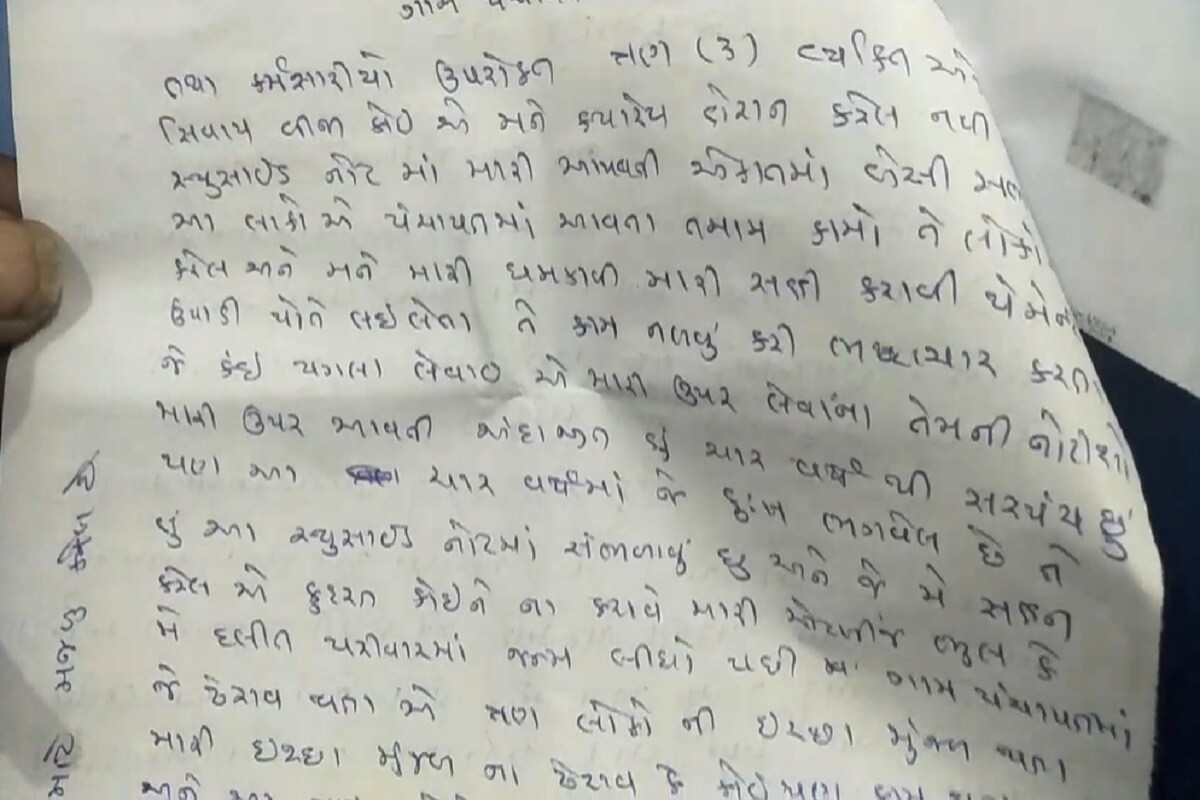 ગામ
તથા કર્મચારીયો ઉપરોક્ત ત્રણ (૩) વ્યક્તિ એ
સિવાય બીજા કોઇ એ મને ક્યારેય હેરાન કરેલ નથી
સ્યુસાઇડ નોટ માં મારી
આ લોકો એ પંચાયતમાં આવતા તમામ કામો ને લોકો
કરેલ અને મને મારી ધમકાવી મારી સહી કરાવી પેમેન્ટ
ઉપાડી પોતે લઇ લેતા ને કામ નબળું કરી ભ્રષ્ટાચાર કરતા
જે કંઇ પગલા લેવાઇ એ મારી ઉપર લેવાંના તેમની નોટીશો
મારી ઉપર આવતી હું ચાર વર્ષ થી સરપંચ છું
પણ આ ચાર વર્ષમાં જે દુઃખ ભગવેલ છે તે
હું આ સ્યુસાઇડ નોટમાં છુ અને જે મે સહન
કરેલ એ કુદરત કોઇને ના કરાવે મારી એટલીજ ભુલ કે
મે દલીત પરીવારમાં જન્મ લીધો પછી ગામ પંચાયતમાં
જે ઠેરાવ થતા એ ત્રણ લોકો ની ઇચ્છા મુંજબ થતા
મારી ઇચ્છા મુંજબ ના ઠેરાવ કે કોઇ પણ કામ
અને